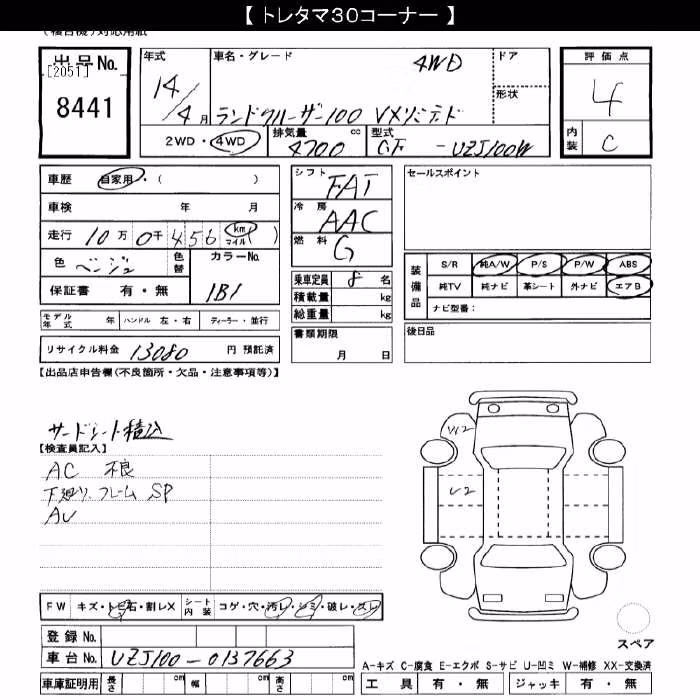 【 トレタマ30コーナー 】
(複合機)対応用紙
出品No.
[2051]
8441
年式 車名・グレード 4WD ドア
14/4月 ランドクルーザー100 VXリミテッド 形状
2WD・4WD 排気量 4700 cc 型式 GF - UZJ100W
評価点
4
内装 C
車歴 自家用・( )
車検 年 月
走行 10万 0千 456 km マイル ( )
色 ベージュ 色替 カラーNo. 1B1
保証書 有・無
モデル年式 年 ハンドル 左・右 ディーラー・並行
リサイクル料金 13080 円 預託済
シフト FAT
冷房 AAC
燃料 G
乗車定員 8 名
積載量 kg
総重量 kg
書類期限
月 日
セールスポイント
装備品 S/R 純A/W P/S P/W ABS
純TV 純ナビ 革シート 外ナビ エアB
ナビ型番:
後日品
【出品店申告欄(不良箇所・欠品・注意事項等)】
サードシート積込
【検査員記入】
AC 不良
下廻り、フレーム SP
AU
W2
U2
FW キズ・トビ石・割レX シート内装 コゲ・穴・汚レ・シミ・破レ・スレ
登録No.
車台No. UZJ100-0137663
車庫証明用 長さ cm 幅 cm 高さ cm
スペア
A-キズ C-腐食 E-エクボ S-サビ U-凹ミ W-補修 XX-交換済
工具 有・無 ジャッキ 有・無